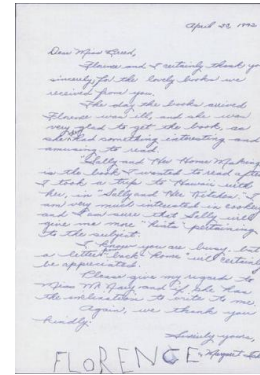 Dear Miss Breed,
Florence and I certainly thank you
sincerely for the lovely books we
received from you.
The day the books arrived
Florence was ill, and she was
very glad to get the book, as
she had something interesting and
amusing to read.
"Sally and Her Home Making"
is the book I wanted to read after
I took a trip to Hawaii with
her, in "Sally and Her Kitchen." I
am very much interested in cooking
and I am sure that Sally will
give me more hints pertaining
to the subject.
I know you are busy, but
a letter "back home" will certainly
be appreciated.
Please give my regard to
Miss Mc and if she has
the to write to me.
Again, we thank you
kindly.
Sincerely yours,
Margaret
FLORENCE